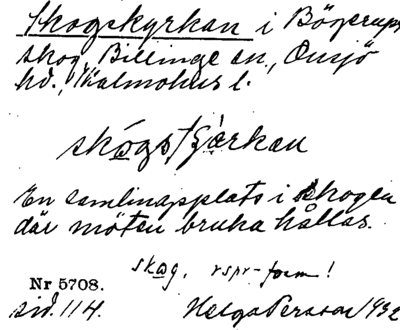 Skogskyrkan i Bögerups
skog, Billinge sn., Onsjö
hd., Malmöhus l.
skógstjärkan
En samlingsplats i skogen
där möten bruka hållas.
skog, rspr-form!
Nr 5708.
sid. 114. Helga Persson 1932